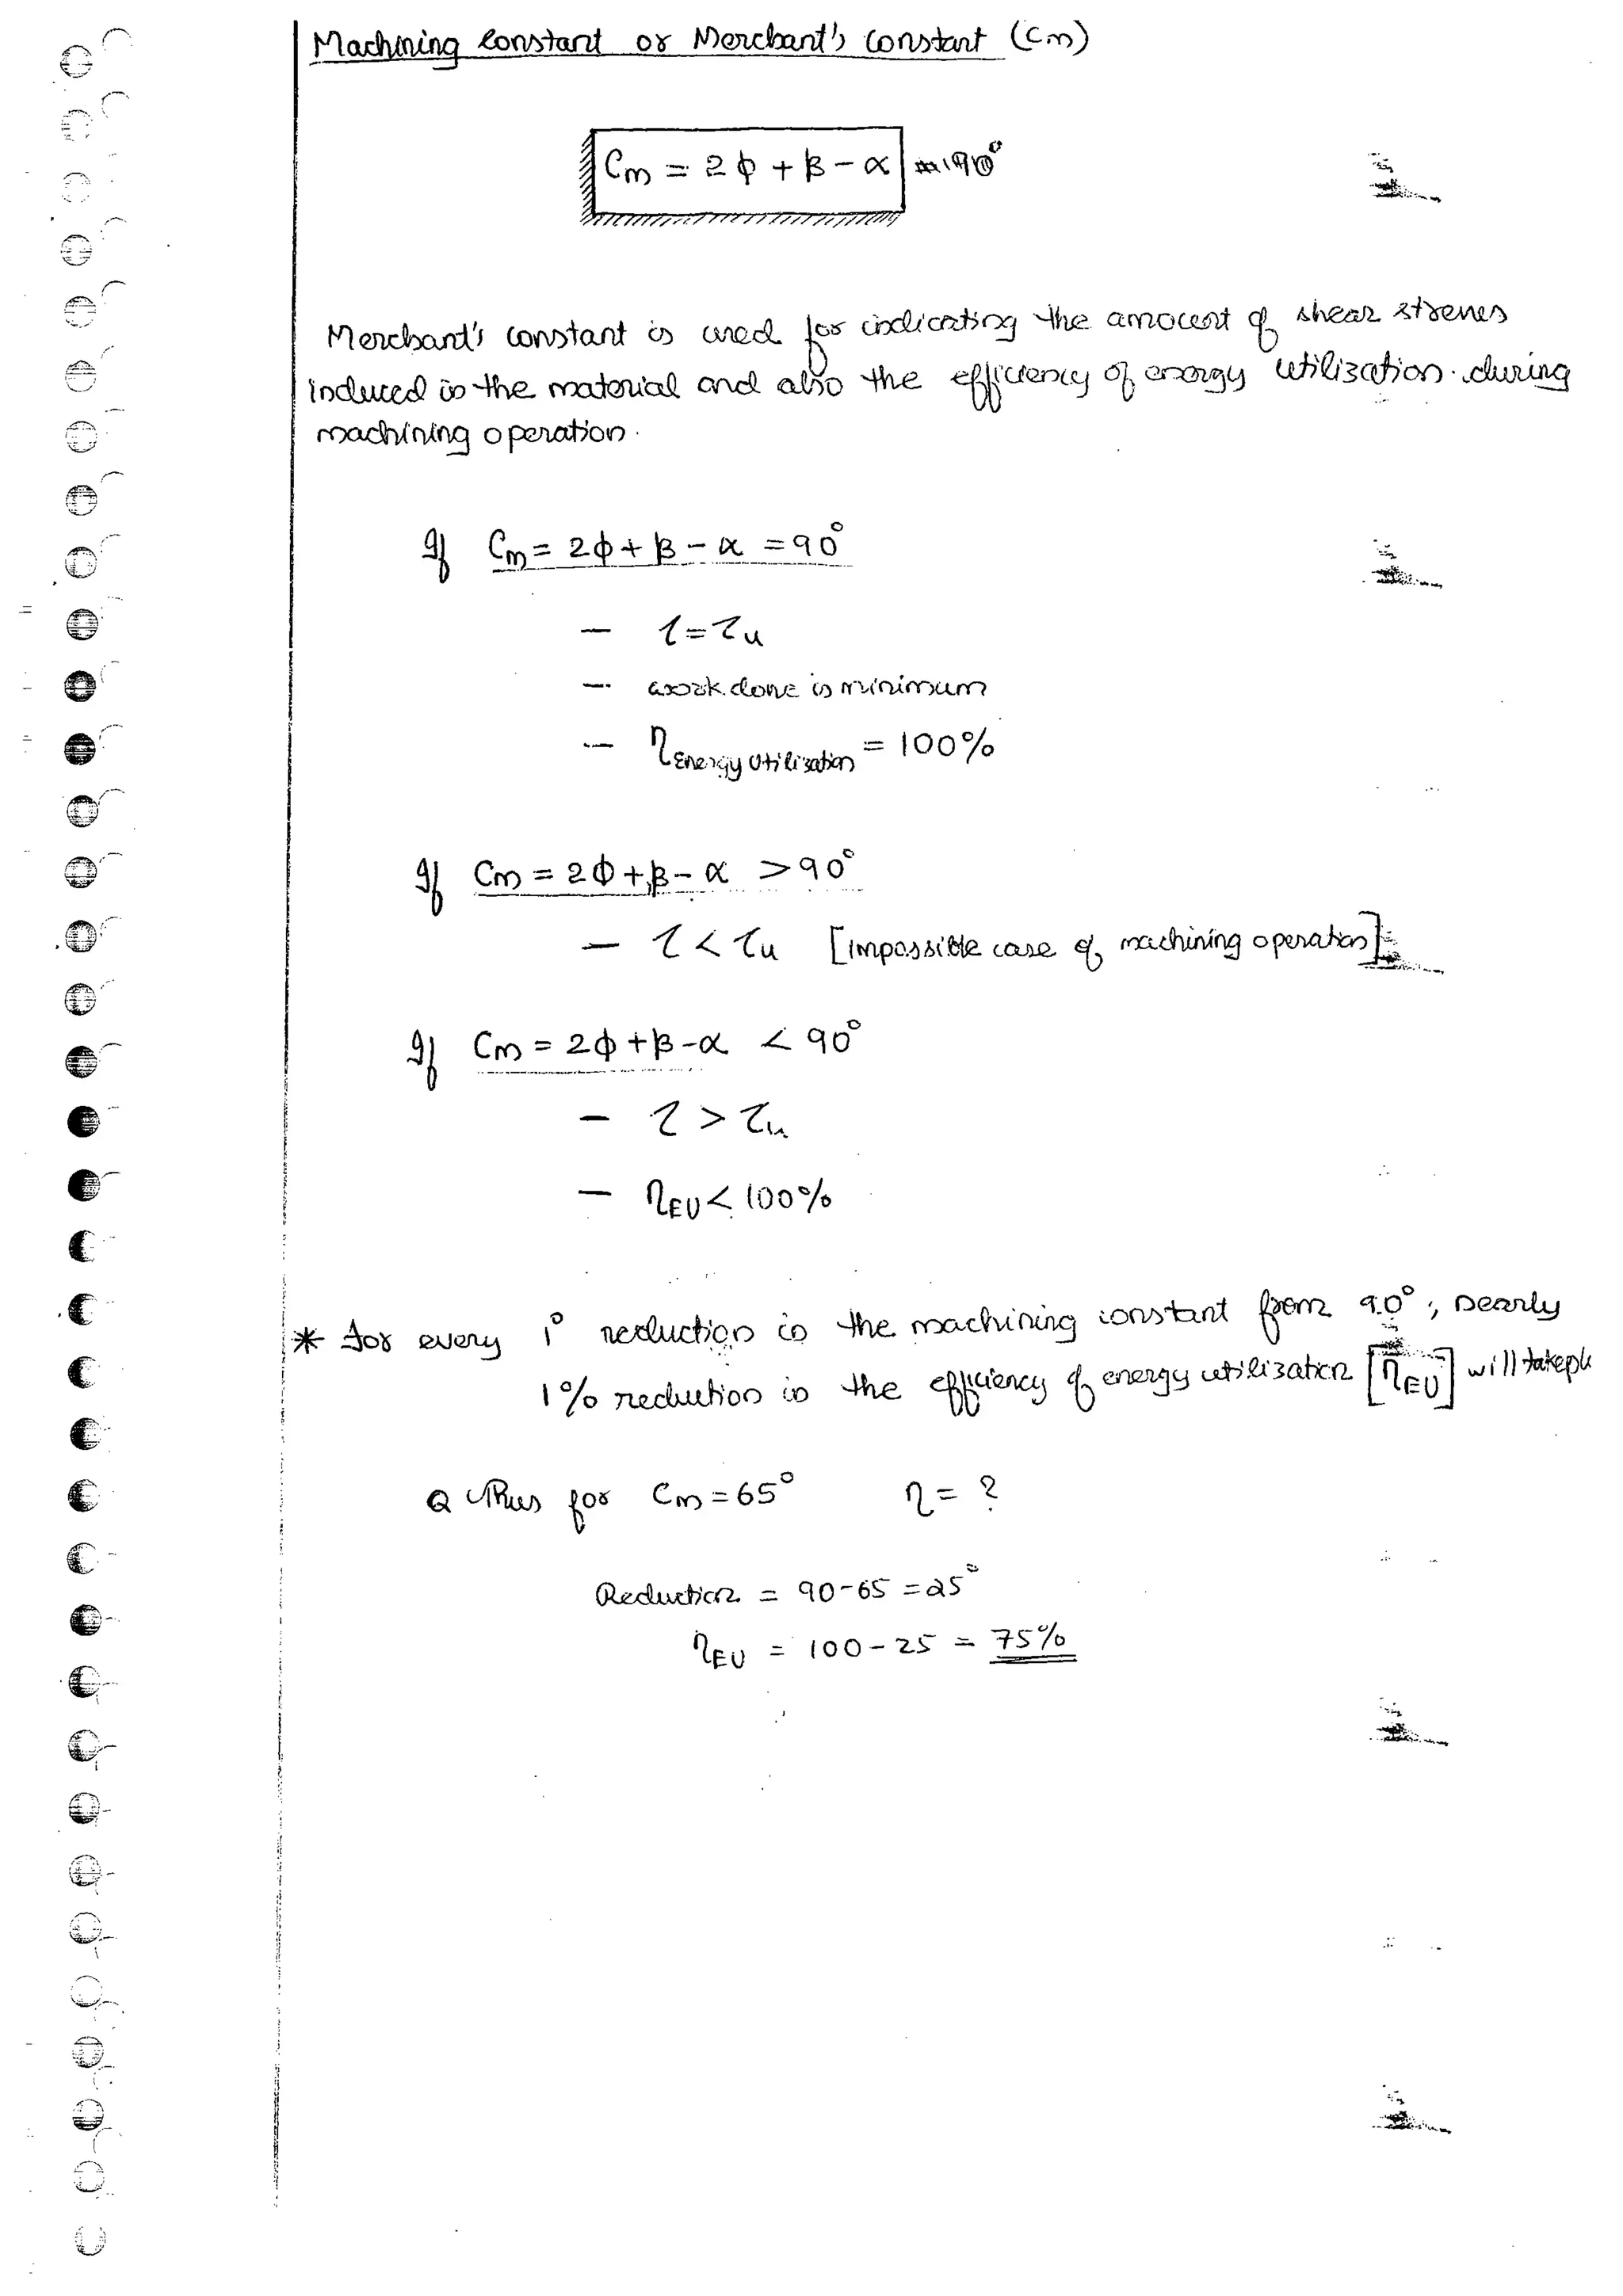 Machining Constant or Merchant's constant (Cm)
Cm = 2ϕ + β - α = 90°
Merchant's constant is used for indicating the amount of shear stresses
induced in the material and also the efficiency of energy utilization during
machining operation.
If Cm = 2ϕ + β - α = 90°
- τ = τu
- work done is minimum
- ηEnergy Utilization = 100%
If Cm = 2ϕ + β - α > 90°
- τ < τu [impossible case of machining operation]
If Cm = 2ϕ + β - α < 90°
- τ > τu
- ηEU < 100%
* for every 1° reduction in the machining constant from 90°, nearly
1% reduction in the efficiency of energy utilization [ηEU] will takepl
Q Thus for Cm = 65° η = ?
Reduction = 90 - 65 = 25°
ηEU = 100 - 25 = 75%